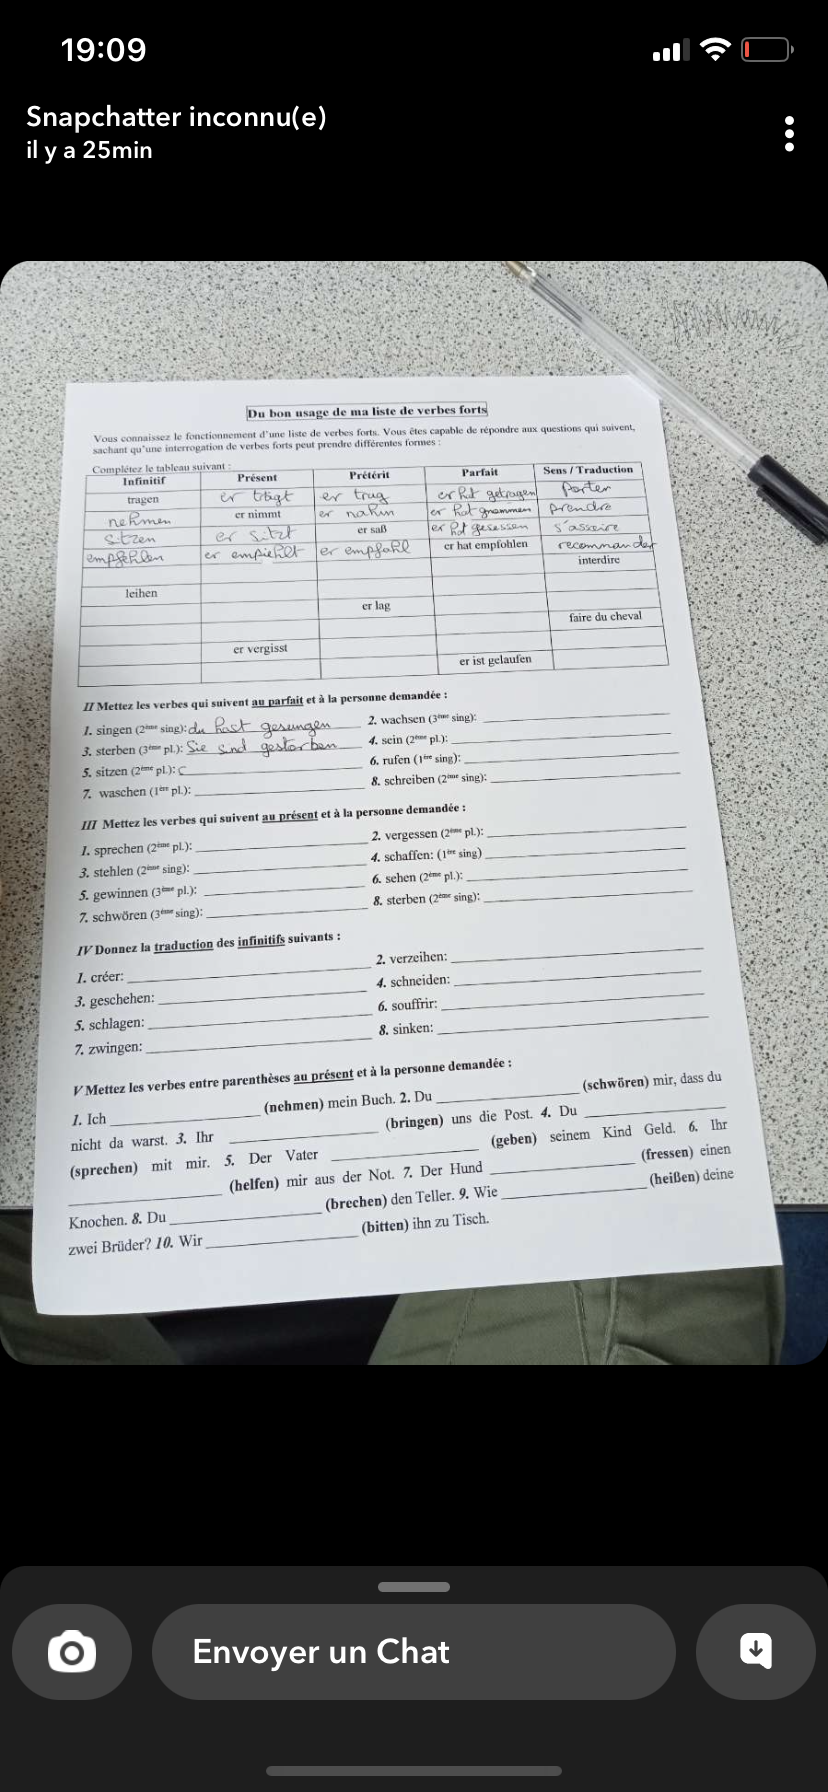 19:09
Snapchatter inconnu(e)
il y a 25min
Du bon usage de ma liste de verbes forts
Vous connaissez le fonctionnement d'une liste de verbes forts. Vous êtes capable de répondre aux questions qui suivent,
sachant qu'une interrogation de verbes forts peut prendre différentes formes :
Complétez le tableau suivant :
Infinitif Présent Prétérit Parfait Sens / Traduction
tragen er trägt er trug er hat getragen Porter
nehmen er nimmt er nahm er hat gnommen prendre
sitzen er sitzt er saß er hat gesessen s'assoire
empfehlen er empiehlt er empfahl er hat empfohlen recommander
interdire
leihen
er lag
faire du cheval
er vergisst
er ist gelaufen
II Mettez les verbes qui suivent au parfait et à la personne demandée :
1. singen (2ème sing): du hast gesungen 2. wachsen (3ème sing):
3. sterben (3ème pl.): Sie sind gestorben 4. sein (2ème pl.):
5. sitzen (2ème pl.): 6. rufen (1ère sing):
7. waschen (1ère pl.): 8. schreiben (2ème sing):
III Mettez les verbes qui suivent au présent et à la personne demandée :
1. sprechen (2ème pl.): 2. vergessen (2ème pl.):
3. stehlen (2ème sing): 4. schaffen: (1ère sing)
5. gewinnen (3ème pl.): 6. sehen (2ème pl.):
7. schwören (3ème sing): 8. sterben (2ème sing):
IV Donnez la traduction des infinitifs suivants :
1. créer: 2. verzeihen:
3. geschehen: 4. schneiden:
5. schlagen: 6. souffrir:
7. zwingen: 8. sinken:
V Mettez les verbes entre parenthèses au présent et à la personne demandée :
1. Ich (nehmen) mein Buch. 2. Du (schwören) mir, dass du
nicht da warst. 3. Ihr (bringen) uns die Post. 4. Du
(sprechen) mit mir. 5. Der Vater (geben) seinem Kind Geld. 6. Ihr
(helfen) mir aus der Not. 7. Der Hund (fressen) einen
Knochen. 8. Du (brechen) den Teller. 9. Wie (heißen) deine
zwei Brüder? 10. Wir (bitten) ihn zu Tisch.
Envoyer un Chat